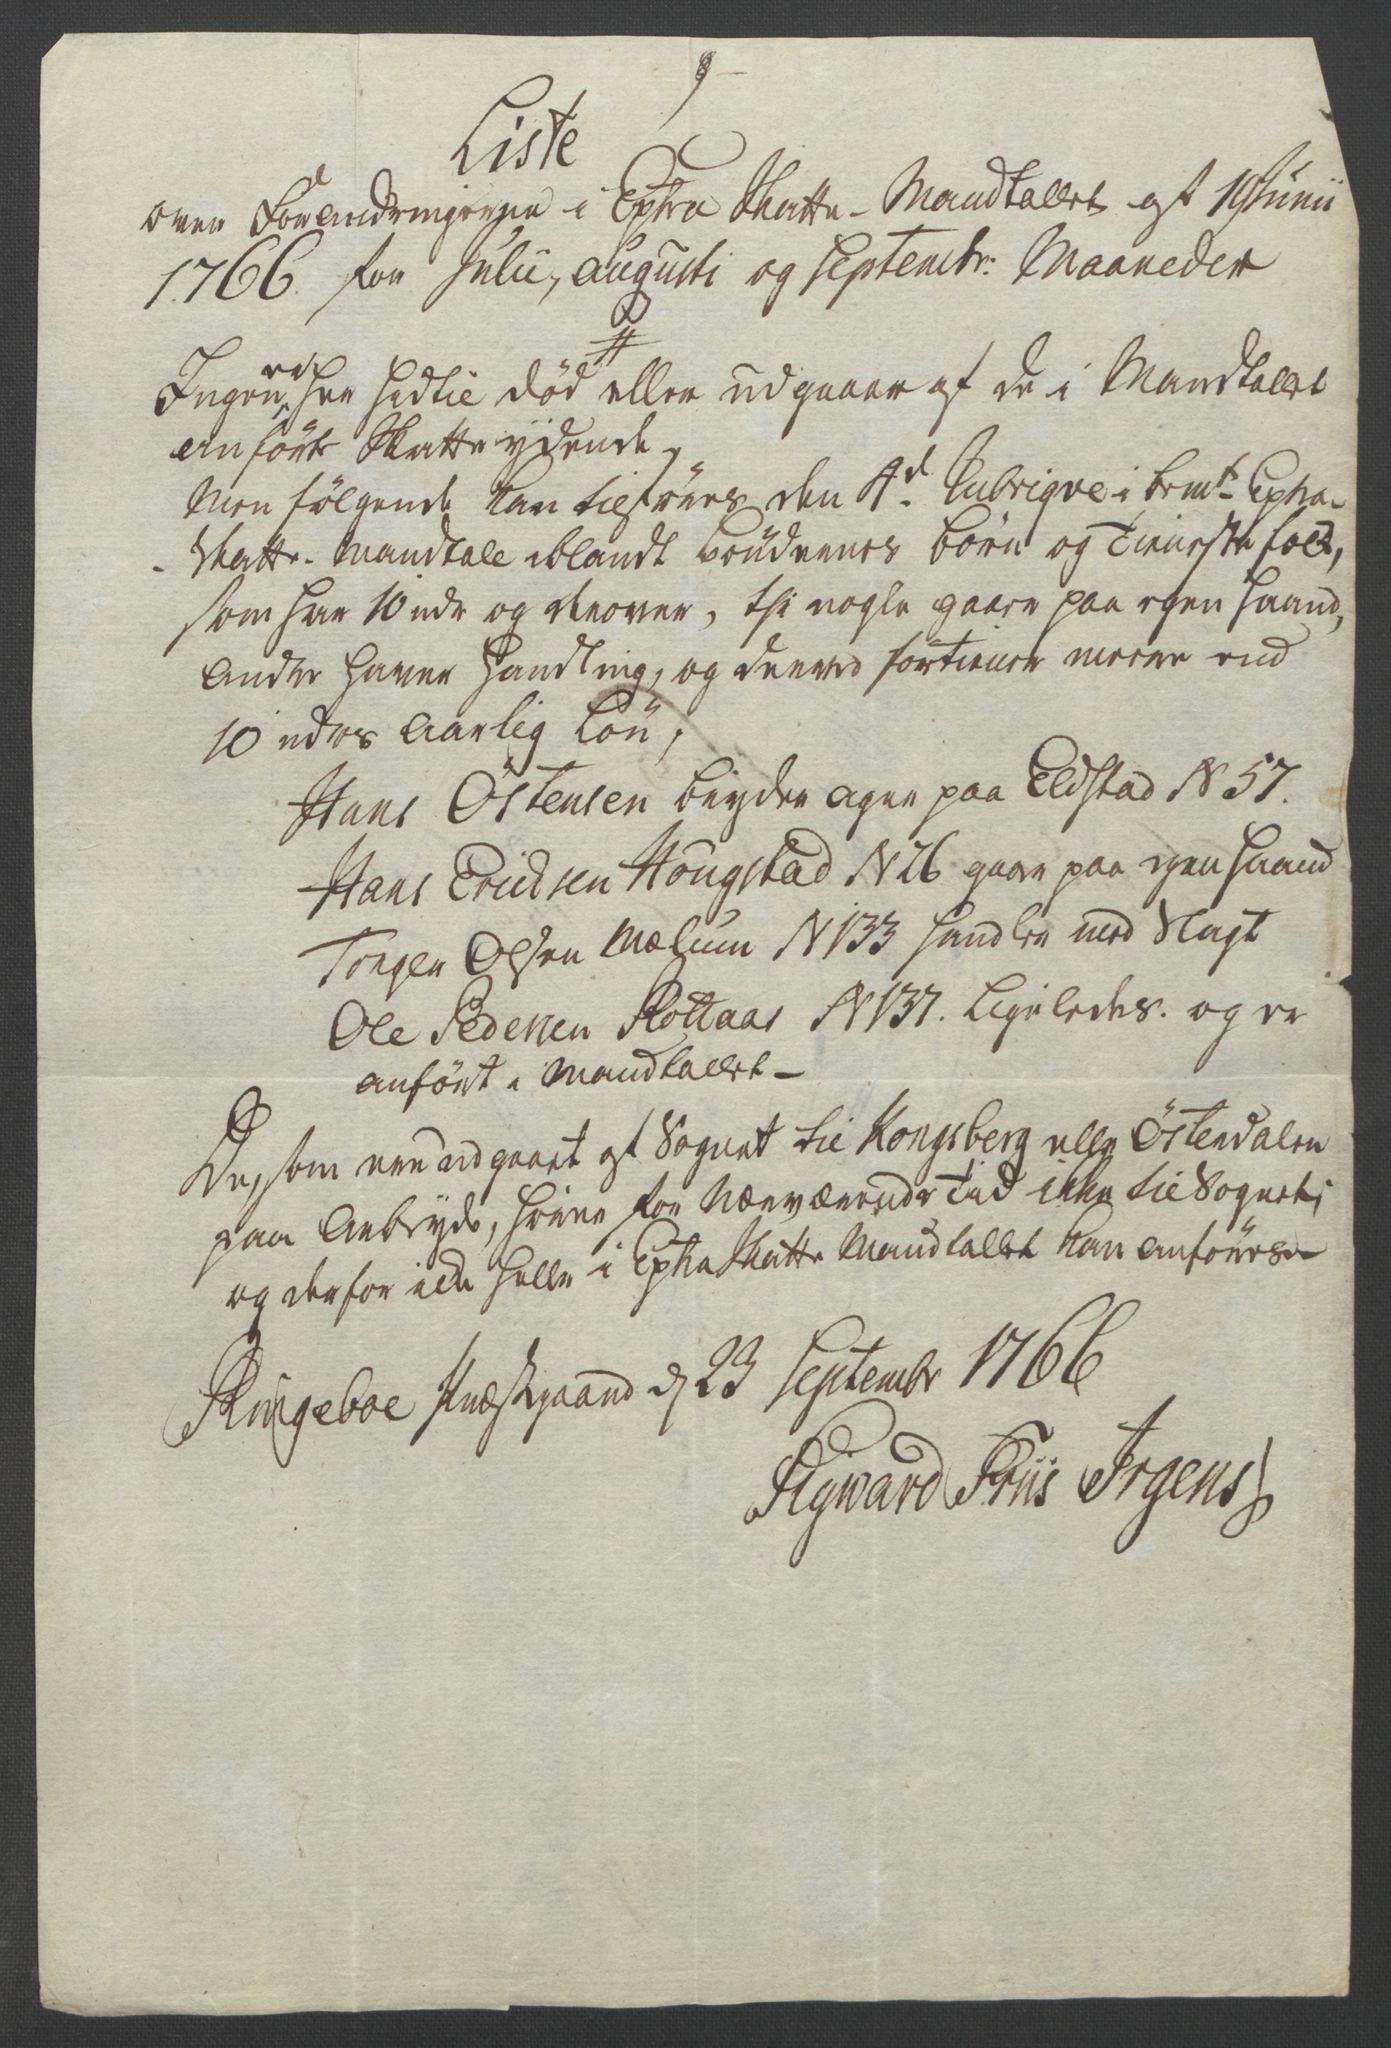 Liste
over Forandringerne i Extra Skatte-Mandtallet af 19 Junii
1766. for Julii, Augusti og Septembr: Maaneder
Ingen er her hidtil død eller udgaaer af de i Mandtallet
anførte Skatte ydende,
Men følgende kan tilføres den 4d Rubriqve i bemte Extra-
-Skatte-Mandtal iblandt Bøndernes Børn og Tieneste folk,
som har 10 rdr og derover, thi nogle gaaer paa egen Haand,
Andre haver Handling, og derved fortiener meere end
10 rdrs Aarlig Løn;
Hans Östensen bryder ager paa Eldstad N 57.
Hans Ericksen Hougstad N 26 gaaer paa egen Haand
Torger Olsen Mælum N 133 handler med Slagt
Ole Pedersen Kottaas N 137. Ligeledes. og er
anført i Mandtallet-
De, som ere udgaaet af Sognet til Kongsberg eller Östendalen
paa Arbeyde, hører for Nærværende Tiid ikke til Sognet;
og derfor icke heller i Extra Skatte Mandtallet kan anføres-
Ringeboe Præstgaard d 23 Septembr 1766
Sigward Friis Irgens